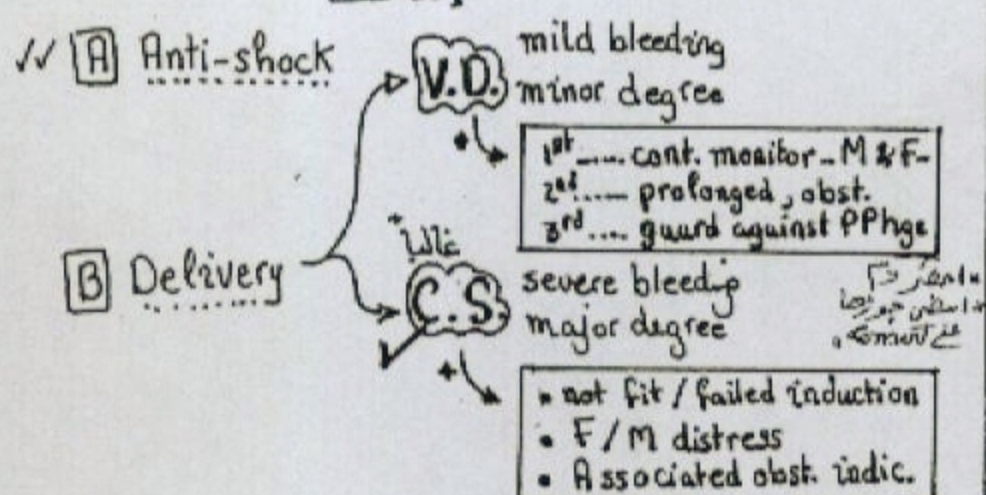 ✓✓ A Anti-shock
V.D. mild bleeding
minor degree
1st ..... cont. monitor - M & F -
2nd ..... prolonged, obst.
3rd .... guard against PPhge
B Delivery
غالباً
C.S. severe bleeding
major degree
• not fit / failed induction
• F / M distress
• Associated obst. indic.